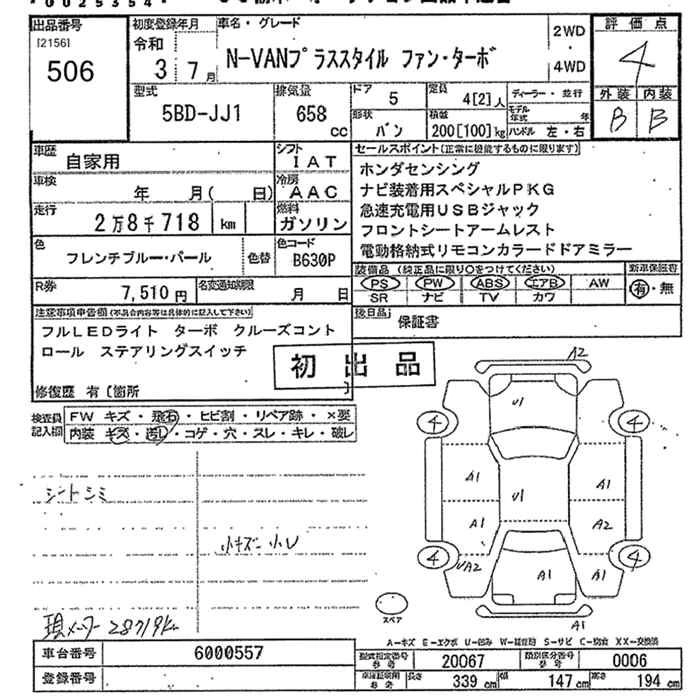 出品番号
[2156]
506
初度登録年月
令和
3 7月
車名・グレード
N-VANプラススタイル ファン・ターボ
2WD
・
4WD
評価点
4
外装 内装
B B
型式
5BD-JJ1
排気量
658
cc
ドア
5
形状
バン
定員
4[2]人
積載
200[100]kg
ディーラー・並行
モデル年式 年
ハンドル 左・右
車歴
自家用
車検
年 月( 日)
走行
2万8千718 km
シフト
IAT
冷房
AAC
燃料
ガソリン
色
フレンチブルー・パール
色替
色コード
B630P
R券
7,510円
名変通知期限
月 日
セールスポイント(正常に機能するものに限ります)
ホンダセンシング
ナビ装着用スペシャルPKG
急速充電用USBジャック
フロントシートアームレスト
電動格納式リモコンカラードドアミラー
装備品(純正品に限り○をつけてください)
PS PW ABS エアB AW
SR ナビ TV カワ
新車保証書
有・無
後日品
保証書
注意事項申告欄(不具合内容等は具体的に記入して下さい)
フルLEDライト ターボ クルーズコント
ロール ステアリングスイッチ
修復歴 有[箇所
初出品
検査員
記入欄
FW キズ・飛石・ヒビ割・リペア跡・×要
内装 キズ・汚レ・コゲ・穴・スレ・キレ・破レ
シートシミ
小キズ・小U
現メーター 28719km
A2
U1
4
4
A1
A1
U1
A1
A2
4
4
UA2
A1
A1
A1
スペア
A-キズ E-エクボ U-凹み W-補修跡 S-サビ C-腐食 XX-交換済
車台番号
6000557
登録番号
型式指定番号
参考
20067
類別区分番号
参考
0006
車体証明用
参考
長さ
339cm
幅
147cm
高さ
194cm